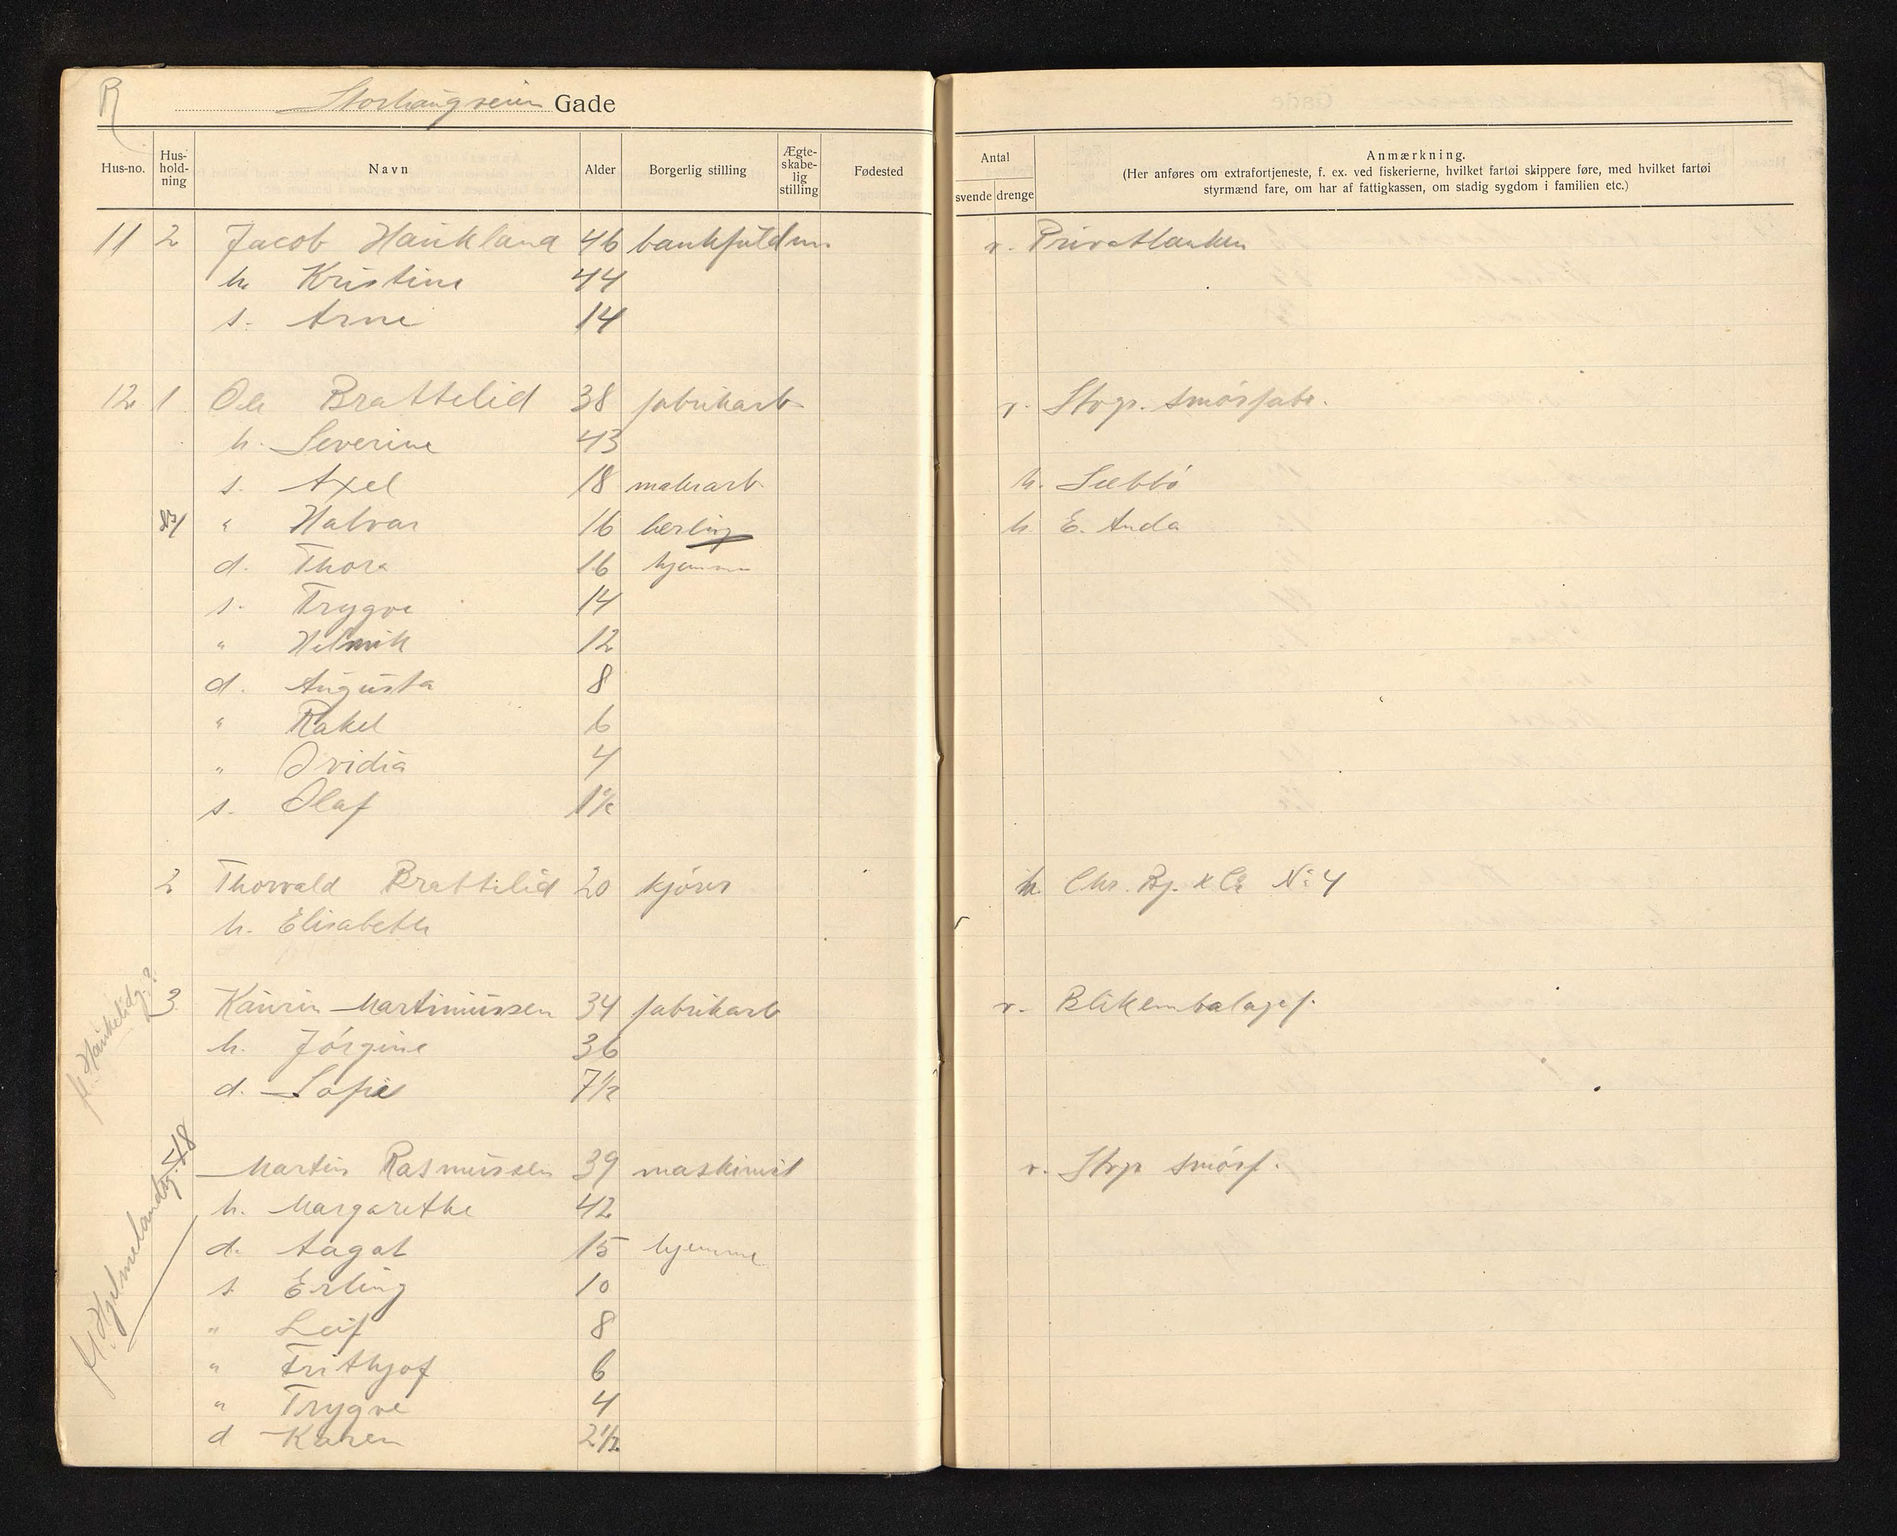 R
Storhaugveien Gade
Hus-no. Hus-hold-ning Navn Alder Borgerlig stilling Ægte-skabe-lig stilling Fødested
Antal svende drenge
Anmærkning.
(Her anføres om extrafortjeneste, f. ex. ved fiskerierne, hvilket fartøi skippere føre, med hvilket fartøi
styrmænd fare, om har af fattigkassen, om stadig sygdom i familien etc.)
11 2 Jacob Haukland 46 bankfuldm. v. Privatbanken
h Kristine 44
s. Arne 14
12 1 Ole Brattelid 38 fabrikarb v. Stvgr. smörfabr.
h. Severine 43
s. Axel 18 malerarb h. Sæbbö
" Halvar 16 h. E. Anda
d. Thora 16 hjemme
s. Trygve 14
" Helmik 12
d. Augusta 8
" Rakel 6
" Ovidia 4
s. Olaf 1½
2 Thorvald Brattelid 20 kjörer h. Chr. Bj. & Co No 4
h. Elisabeth
3 Kaurin Martinussen 34 fabrikarb v. Blikembalagef.
h. Jörgine 36
d. Sofie 7½
Martin Rasmussen 39 maskinist v. Stvgr smörf.
h. Margarethe 42
d. Aagot 15 hjemme
s Erling 10
" Leif 8
" Frithjof 6
" Trygve 4
d Karen 2½